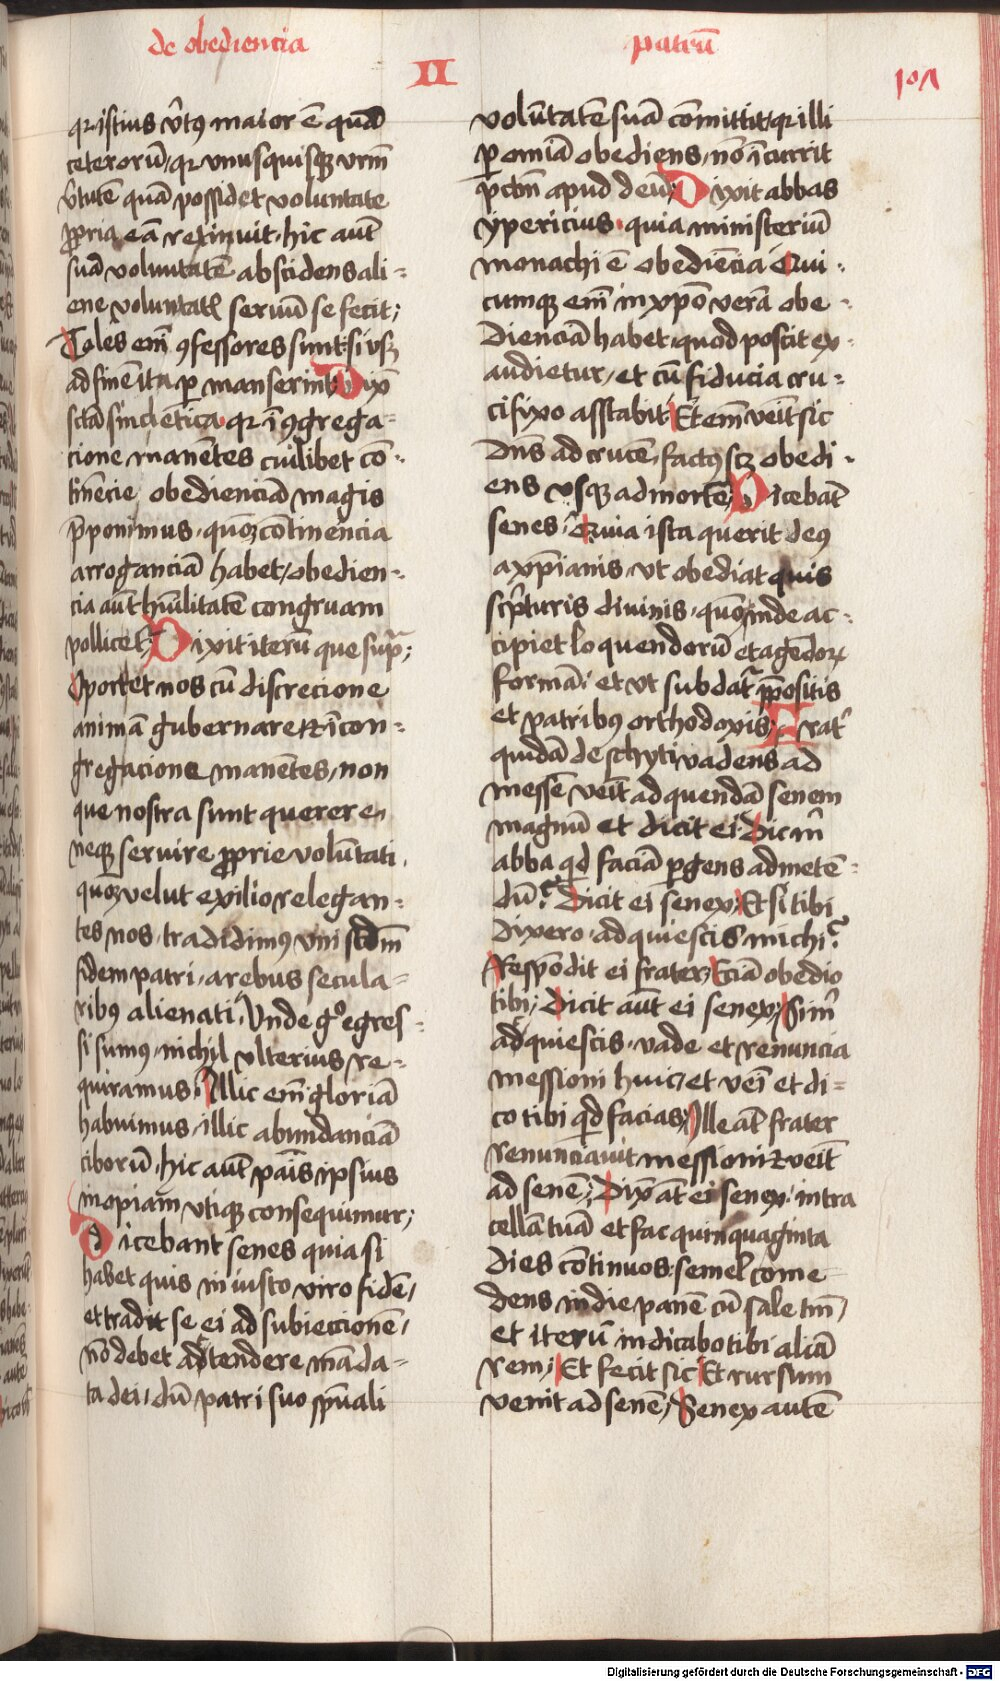 de obediencia
II
patrū
101
qr istius v̄tꝰ maior ē quā
ceterorū, qr vnusquisqꝫ vr̄m
v̄tutē quā possidet voluntate
ꝓpria eā retinuit, hic aut̄
suā voluntatē abscidens ali⸗
ene voluntati seruū se fecit;
Tales em̄ ꝯfessores sunt, si vsqꝫ
ad finē ita ꝑmanserint Dix̄
sctā sincletica qr ī ꝯgrega⸗
cione manētes cuilibet cō⸗
tinēcie obedienciā magis
p̄ponimus, quoꝫ continencia
arroganciā habet, obedien⸗
cia aut̄ hūilitatē congruam
pollicet̄; Dixit iterū que supᷓ;
Oportet nos cū discrecione
animā gubernare Et ī con⸗
gregacione manētes, non
que nostra sunt querere,
neqꝫ seruire ꝓprie volūtati,
quoꝫ velut exilio relegan⸗
tes nos, tradidimꝰ vni scdm̄
fidem patri, a rebus secula⸗
ribꝰ alienati, Vnde gͦ egres⸗
si sumꝰ, nichil vlterius re⸗
quiramus, Illic em̄ gloriā
habuimus, illic abundanciā
ciborū, hic aut̄ panis ipsius
inopiam vtiqꝫ consequimur;
Dicebant senes quia si
habet quis in iusto viro fidē,
et tradit se ei ad subiectionē,
nō debet adtendere māda⸗
ta dei, dū patri suo spūali
volūtatē suā cōmittit, qr illi
ꝑ omīa obediens, nō īcurrit
pctm̄ apud deū; Dixit abbas
ypericius quia ministeriū
monachi ē obediēcia Qui⸗
cumqꝫ em̄ in xp̄o verā obe⸗
dienciā habet, quod poscit ex⸗
audietur, et cū fiducia cru⸗
cifixo asstabit, Et em̄ veīt sic
Dn̄s ad crucē, factꝰ scꝫ obedi⸗
ens vsqꝫ ad mortē, Dicebāt
senes Quia ista querit deꝰ
a xp̄ianis, vt obediat quis
scpturis diuinis, quoꝫ inde ac⸗
cipiet loquendorū et agēdorꝫ
formā, et vt subdat̄ p̄positis
et patribꝰ orthodoxis; Erat
quidā de schyti vadens ad
messē veīt ad quendā senem
magnū et dicit ei Dic m̄
abba qd̄ faciā ꝑgens ad metē⸗
dū? Dicit ei senex, Et si tibi
dixero adquiescis michi?
Respōdit ei frater, Eciā obedio
tibi; Dicit aut̄ ei senex, Si m̄
adquiescis, vade et renuncia
messioni huic, et veī et di⸗
co tibi qd̄ facias; Ille at̄ frater
renunciauit messioni et veīt
ad senē; Dix̄ at̄ ei senex, intra
cellā tuā et fac quinquaginta
dies cōtinuos, semel come⸗
dens in die panē cū sale tm̄,
et iterū indicabo tibi aliā
rem, Et fecit sic Et rursum
venit ad senē, Senex autē
Digitalisierung gefördert durch die Deutsche Forschungsgemeinschaft - DFG